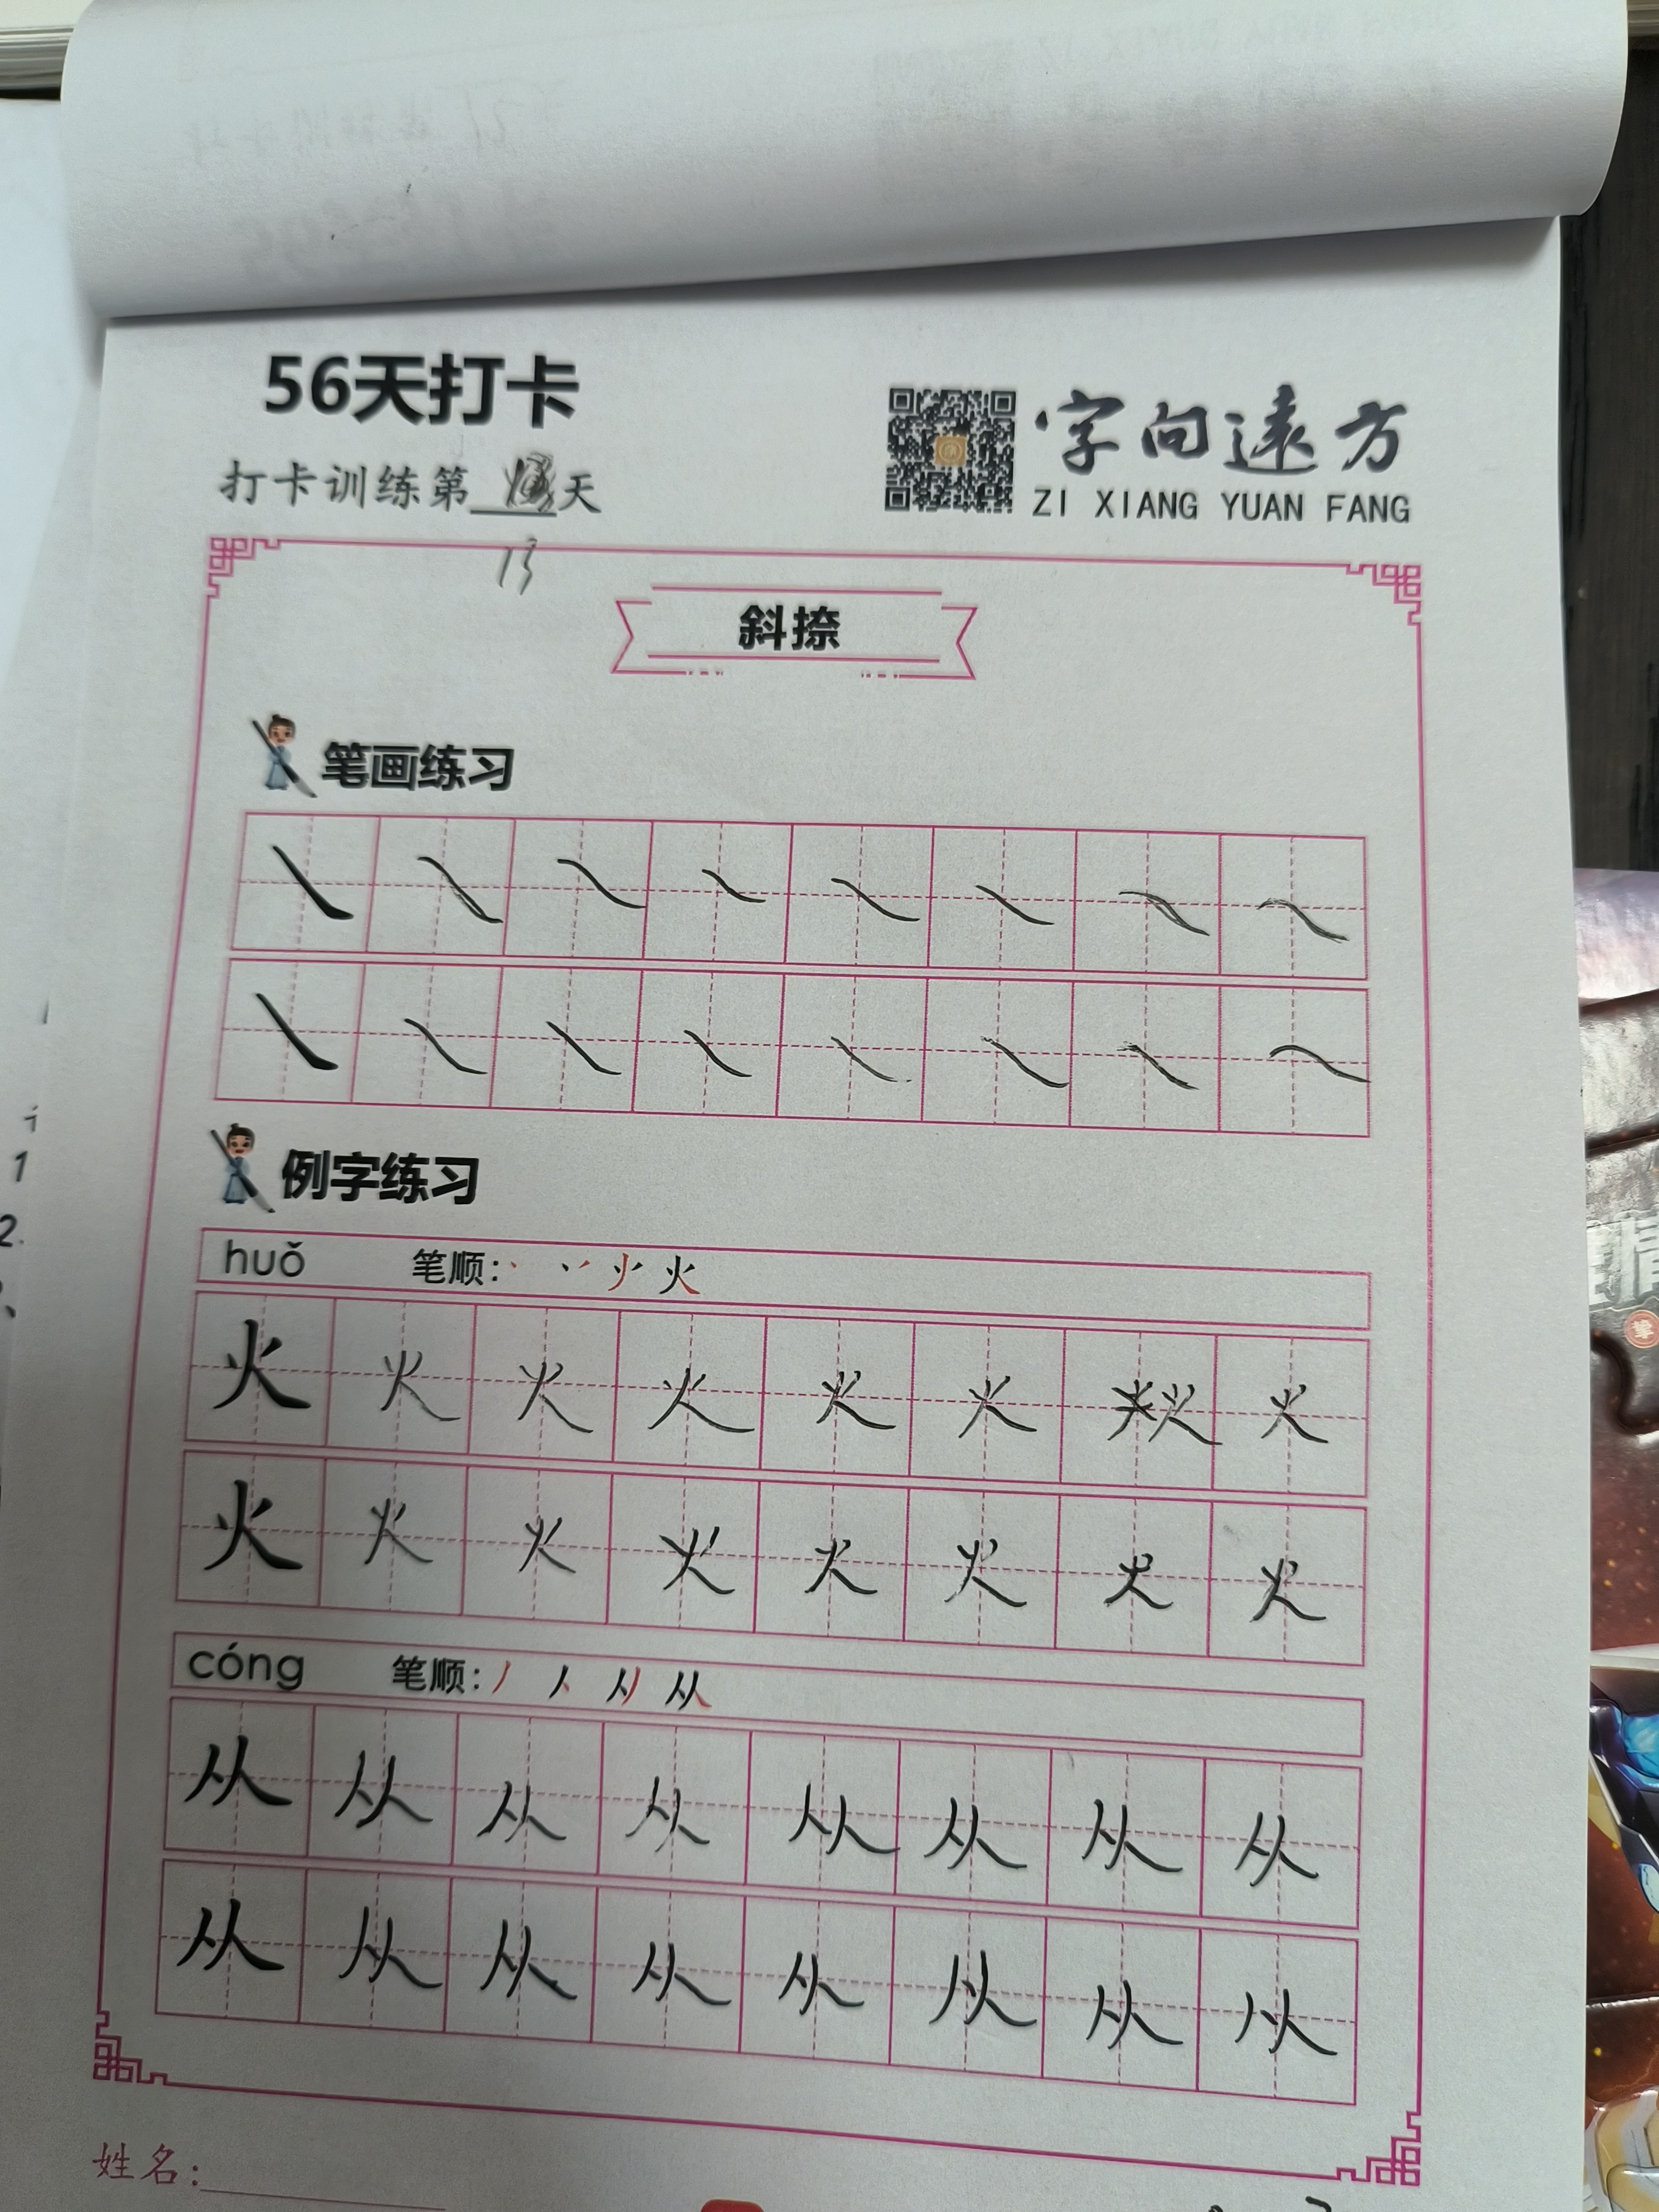 56天打卡
字向遠方
打卡训练第 天
ZI XIANG YUAN FANG
13
斜捺
笔画练习
例字练习
huǒ 笔顺: 火
火 火 火 火 火 火 火 火
火 火 火 火 火 火 火 火
cóng 笔顺: 丿 人 从
从 从 从 从 从 从 从 从
从 从 从 从 从 从 从 从
姓名:
1
2.